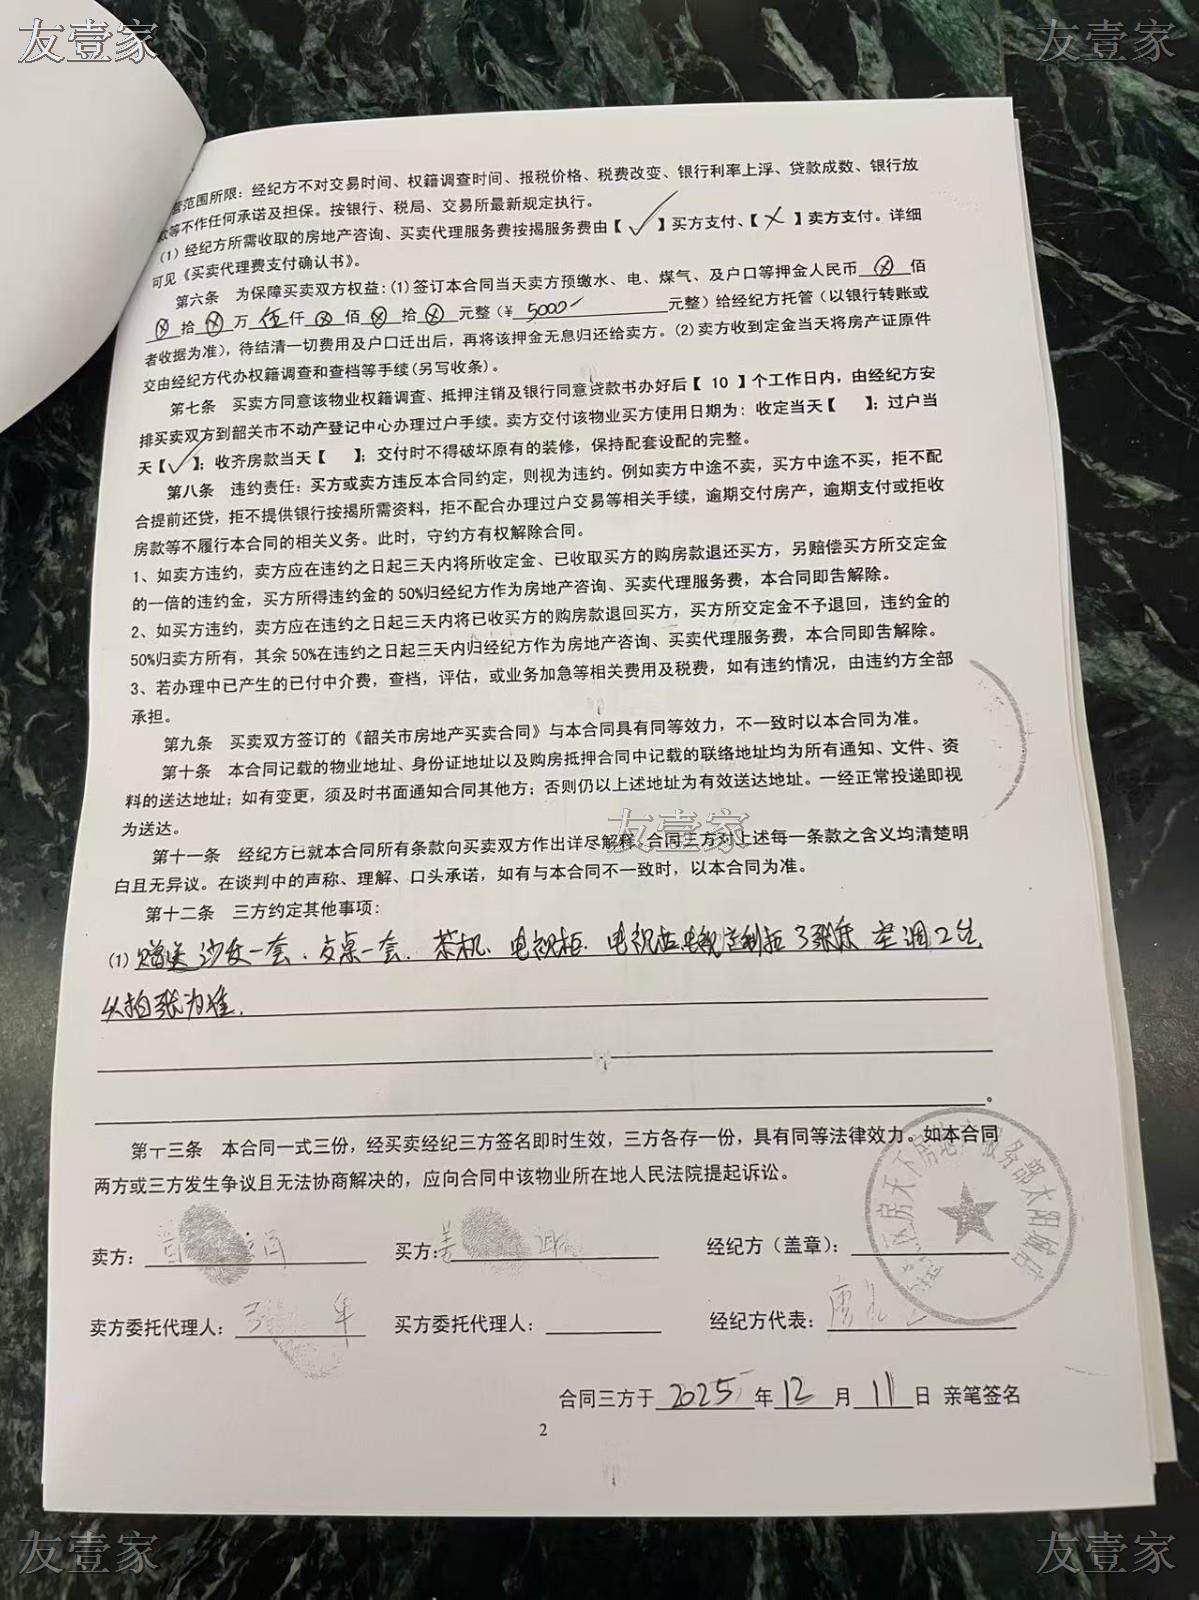 友壹家
友壹家
营范围所限：经纪方不对交易时间、权籍调查时间、报税价格、税费改变、银行利率上浮、贷款成数、银行放
款等不作任何承诺及担保。按银行、税局、交易所最新规定执行。
（1）经纪方所需收取的房地产咨询、买卖代理服务费按揭服务费由【 ✓ 】买方支付、【 × 】卖方支付。详细
可见《买卖代理费支付确认书》。
第六条 为保障买卖双方权益：(1)签订本合同当天卖方预缴水、电、煤气、及户口等押金人民币 ⊗ 佰
⊗ 拾 ⊗ 万 伍 仟 ⊗ 佰 ⊗ 拾 ⊗ 元整（¥ 5000 元整）给经纪方托管（以银行转账或
者收据为准），待结清一切费用及户口迁出后，再将该押金无息归还给卖方。(2)卖方收到定金当天将房产证原件
交由经纪方代办权籍调查和查档等手续(另写收条)。
第七条 买卖方同意该物业权籍调查、抵押注销及银行同意贷款书办好后【 10 】个工作日内，由经纪方安
排买卖双方到韶关市不动产登记中心办理过户手续。卖方交付该物业买方使用日期为：收定当天【 】；过户当
天【✓】；收齐房款当天【 】；交付时不得破坏原有的装修，保持配套设配的完整。
第八条 违约责任：买方或卖方违反本合同约定，则视为违约。例如卖方中途不卖，买方中途不买，拒不配
合提前还贷，拒不提供银行按揭所需资料，拒不配合办理过户交易等相关手续，逾期交付房产，逾期支付或拒收
房款等不履行本合同的相关义务。此时，守约方有权解除合同。
1、如卖方违约，卖方应在违约之日起三天内将所收定金、已收取买方的购房款退还买方，另赔偿买方所交定金
的一倍的违约金，买方所得违约金的 50%归经纪方作为房地产咨询、买卖代理服务费，本合同即告解除。
2、如买方违约，卖方应在违约之日起三天内将已收买方的购房款退回买方，买方所交定金不予退回，违约金的
50%归卖方所有，其余 50%在违约之日起三天内归经纪方作为房地产咨询、买卖代理服务费，本合同即告解除。
3、若办理中已产生的已付中介费，查档，评估，或业务加急等相关费用及税费，如有违约情况，由违约方全部
承担。
第九条 买卖双方签订的《韶关市房地产买卖合同》与本合同具有同等效力，不一致时以本合同为准。
第十条 本合同记载的物业地址、身份证地址以及购房抵押合同中记载的联络地址均为所有通知、文件、资
料的送达地址；如有变更，须及时书面通知合同其他方；否则仍以上述地址为有效送达地址。一经正常投递即视
为送达。
友壹家
第十一条 经纪方已就本合同所有条款向买卖双方作出详尽解释，合同三方对上述每一条款之含义均清楚明
白且无异议。在谈判中的声称、理解、口头承诺，如有与本合同不一致时，以本合同为准。
第十二条 三方约定其他事项：
(1) 赠送沙发一套、 桌一套、茶机、电视柜、 3张床 空调2台
以拍张为准.
第十三条 本合同一式三份，经买卖经纪三方签名即时生效，三方各存一份，具有同等法律效力。如本合同
两方或三方发生争议且无法协商解决的，应向合同中该物业所在地人民法院提起诉讼。
区房天下房地产服务部太阳城店
卖方：
买方：姜
经纪方（盖章）：
卖方委托代理人：
买方委托代理人：
经纪方代表：
合同三方于 2025 年 12 月 11 日 亲笔签名
2
友壹家
友壹家